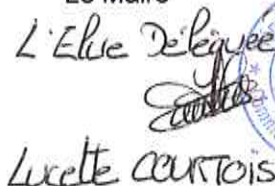 Le Maire
L'Elue Déléguée
Lucette COURTOIS